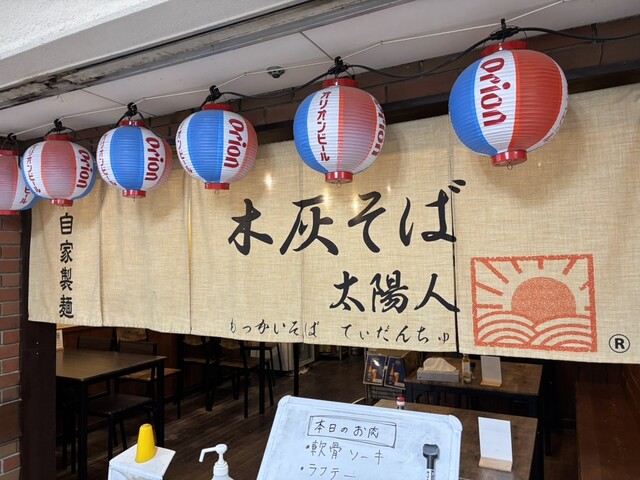 オリオンビール
Orion
Orion
オリオンビール
Orion
Orion
自家製麺
木灰そば
太陽人
もっかいそば てぃだんちゅ
®
本日のお肉
・軟骨ソーキ
・ラフテー